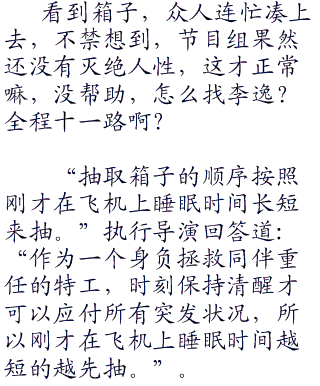 看到箱子，众人连忙凑上
去，不禁想到，节目组果然
还没有灭绝人性，这才正常
嘛，没帮助，怎么找李逸？
全程十一路啊？
“抽取箱子的顺序按照
刚才在飞机上睡眠时间长短
来抽。”执行导演回答道：
“作为一个身负拯救同伴重
任的特工，时刻保持清醒才
可以应付所有突发状况，所
以刚才在飞机上睡眠时间越
短的越先抽。”。